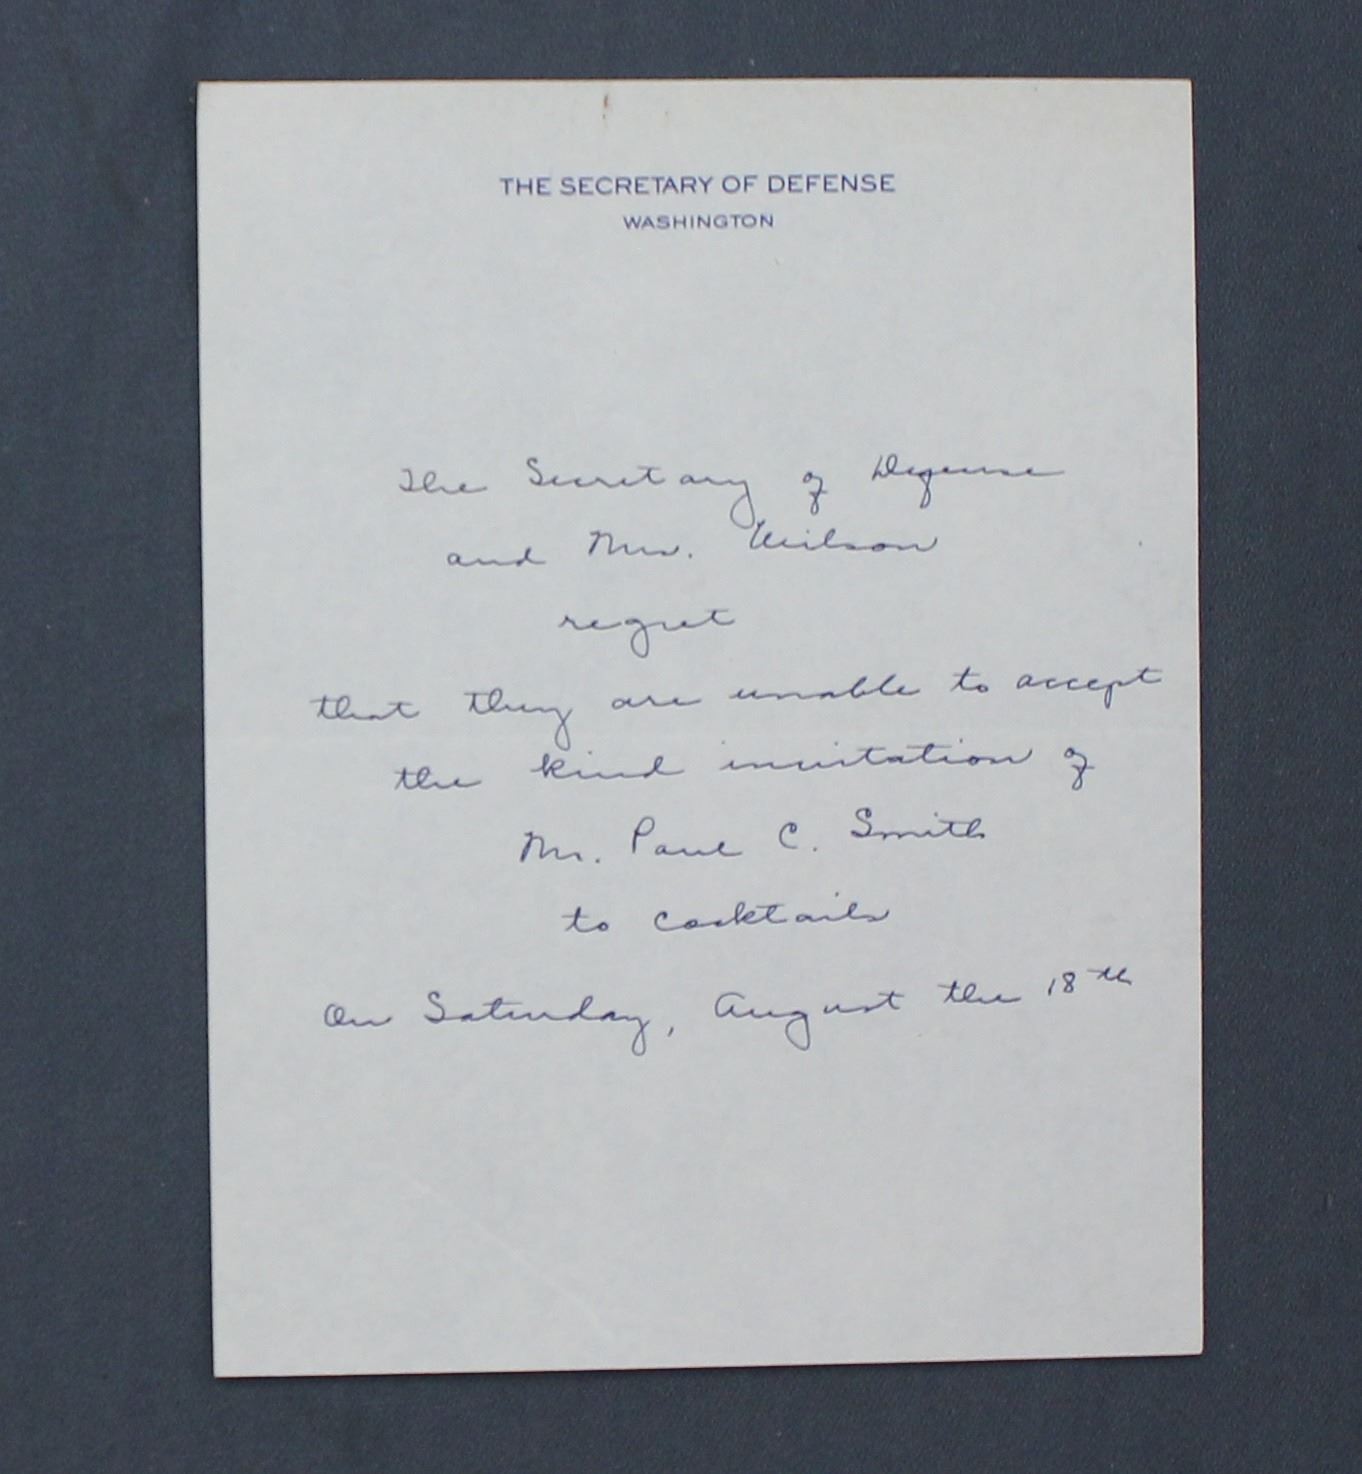 THE SECRETARY OF DEFENSE
WASHINGTON
The Secretary of Defense
and Mrs. Wilson
regret
that they are unable to accept
the kind invitation of
Mr. Paul C. Smith
to cocktails
On Saturday, August the 18th